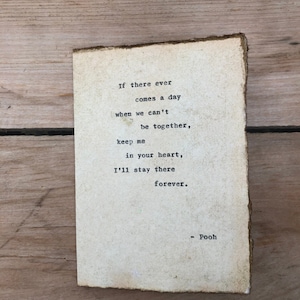 If there ever
comes a day
when we can't
be together,
keep me
in your heart,
I'll stay there
forever.
- Pooh